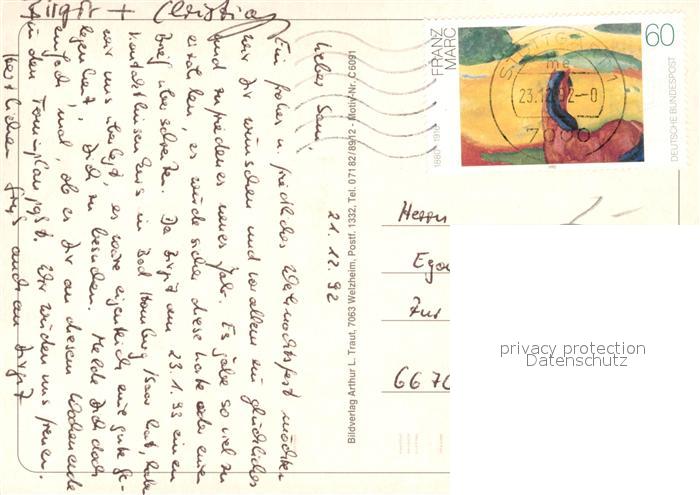 21.12.92
Lieber Sam,
Ein frohes u. friedliches Weihnachtsfest möchten
wir Dir wünschen und vor allem ein glückliches
und zufriedenes neues Jahr. Es gäbe so viel zu
erzählen, es würde sicher diese Karte oder einen
Brief überschreiten. Da Birgit am 23.1.93 einen
Kontaktlinsenkurs in Bad Homburg /Saar hat, haben
wir uns überlegt, es wäre eigentlich eine gute Ge-
legenheit, Dich zu besuchen. Melde Dich doch
einfach mal ob es Dir an diesem Wochenende
in den Terminplan passt. Wir würden uns freuen.
Herzlichen Gruß auch an Birgit
Birgit + Christian
Bildverlag Arthur L. Traut, 7063 Welzheim, Postf. 1332, Tel. 07182/8912 - Motiv-Nr. C 6091
FRANZ
MARC
1880-1916
60
DEUTSCHE BUNDESPOST
23.12.92-0
7000
Herrn
Zur
667
privacy protection
Datenschutz